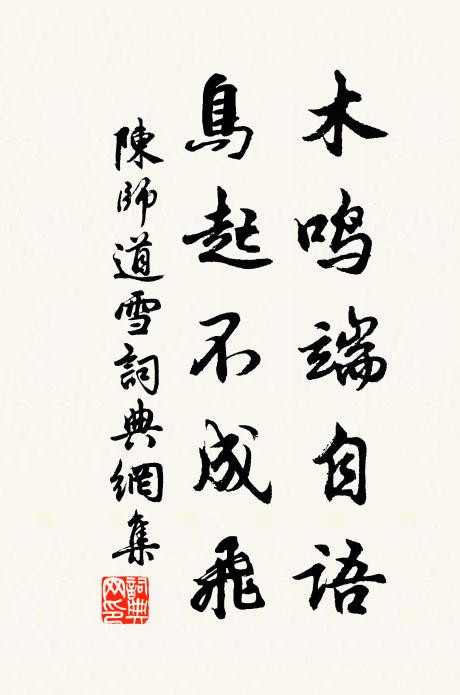 木鸣端自语
鳥起不成飛
陳師道雪詞典網集
詞典网印